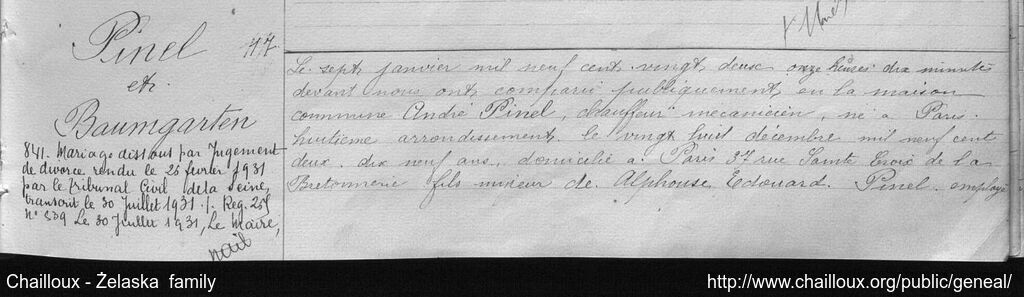 Pinel 77
et
Baumgarten
841. Mariage dissous par Jugement
de divorce rendu le 25 février 1931
par le tribunal Civil de la Seine,
transcrit le 30 Juillet 1931 /. Reg. 25
N° 539 Le 30 Juillet 1931, Le Maire,
Le sept janvier mil neuf cent vingt deux onze heures dix minutes
devant nous ont comparu publiquement en la maison
commune André Pinel, chauffeur mécanicien, né à Paris.
huitième arrondissement le vingt huit décembre mil neuf cent
deux. dix neuf ans, domicilié à Paris 37 rue Sainte Croix de la
Bretonnerie fils mineur de Alphonse Edouard Pinel employé
Chailloux - Żelaska family
http://www.chailloux.org/public/geneal/